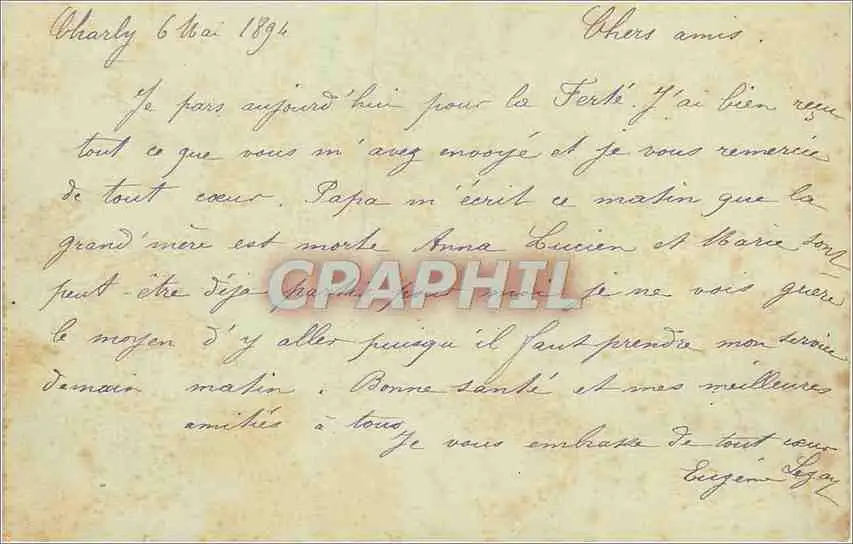 Charly 6 Mai 1894 Chers amis.
Je pars aujourd'hui pour la Ferté. J'ai bien reçu
tout ce que vous m'avez envoyé et je vous remercie
de tout cœur. Papa m'écrit ce matin que la
grand'mère est morte Anna Lucien et Marie sont
peut-être déja pour moi je ne vois guère
CPAPHIL
le moyen d'y aller puisqu'il faut prendre mon service
demain matin. Bonne santé et mes meilleures
amitiés à tous
Je vous embrasse de tout cœur
Eugène